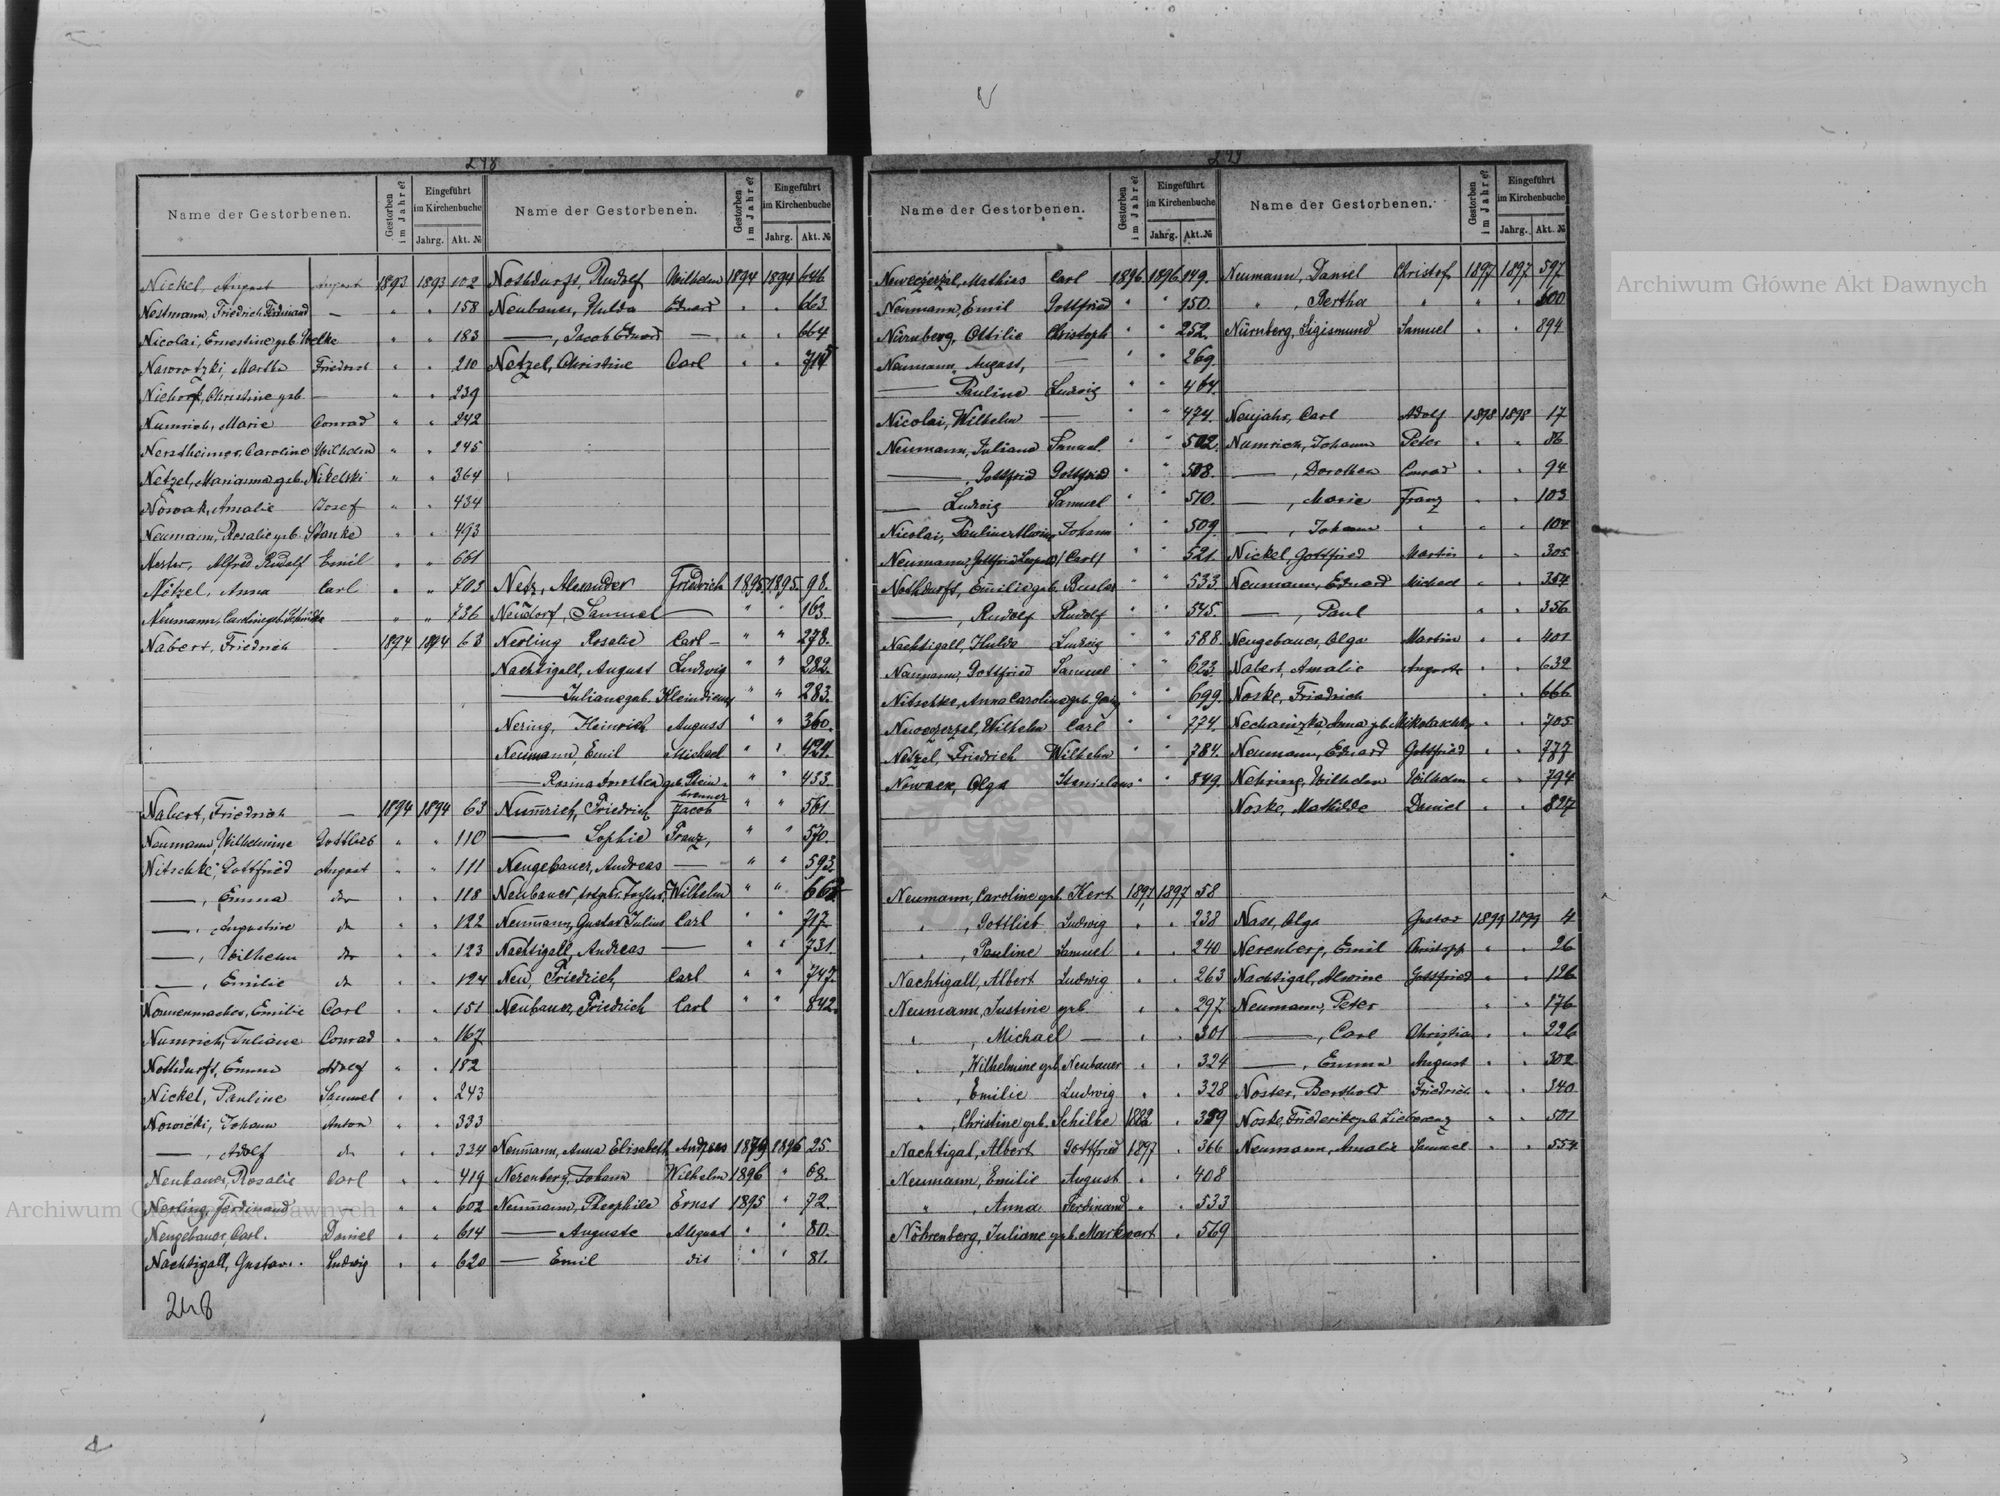 248
Name der Gestorbenen. Gestorben im Jahre? Eingeführt im Kirchenbuche Jahrg. Akt. №
Nickel, August August 1893 1893 102
Nestmann, Friedrich Ferdinand — " " 158
Nicolai, Ernestine geb. " " 183
Nawrotzki, Martha Friedrich " " 210
Christine geb. — " " 239
Numrich, Marie Conrad " " 242
Nerstheimer, Caroline Wilhelm " " 245
Netzel, Marianna geb. Nikelski " " 364
Nowak, Amalie Josef " " 434
Neumann, Rosalie geb. Stanke " " 493
Nester, Alfred Rudolf Emil " " 661
Nötzel, Anna Carl " " 703
Neumann, Caroline geb. Schmidtke " " 736
Nabert, Friedrich — 1894 1894 63
Nabert, Friedrich — 1894 1894 63
Neumann, Wilhelmine Gottlieb " " 110
Nitschke, Gottfried August " " 111
—, Emma dto " " 118
—, Augustine do " " 122
—, Wilhelm dto " " 123
—, Emilie do " " 124
Nonnenmacher, Emilie Carl " " 151
Numrich, Juliane Conrad " " 167
Nothdurft, Emma Adolf " " 182
Nickel, Pauline Samuel " " 243
Nowicki, Johann Anton " " 333
—, Adolf do " " 334
Neubauer, Rosalie Carl " " 419
Nerling, Ferdinand — " " 602
Neugebauer, Carl. Daniel " " 614
Nachtigall, Gustav. Ludwig " " 620
248
Name der Gestorbenen. Gestorben im Jahre? Eingeführt im Kirchenbuche Jahrg. Akt. №
Nothdurft, Rudolf Wilhelm 1894 1894 646
Neubauer, Hulda Eduard " " 663
—, Jacob Eduard — " " 664
Netzel, Christine Carl " " 715
Netz, Alexander Friedrich 1895 1895 98.
Neudorf, Samuel — " " 163.
Nerling Rosalie Carl " " 278.
Nachtigall, August Ludwig " " 282.
— Juliane geb. Kleindienst " " 283.
Nering, Heinrich August " " 360.
Neumann, Emil Michael " " 424.
— Rosina Dorothea geb. Stein- " " 433.
bremer
Numrich, Friedrich Jacob " " 561
— Sophie Franz, " " 570.
Neugebauer, Andreas — " " 593.
Neubauer, Wilhelm " " 662
Neumann, Gustav Julius Carl " " 717.
Nachtigall, Andreas — " " 731.
Neu, Friedrich, Carl " " 747.
Neubauer, Friedrich Carl " " 842.
Neumann, Anna Elisabeth Andreas 1879 1896 25.
Nerenberg, Johann Wilhelm 1896 " 68.
Neumann, Theophila Ernst 1895 " 72.
— Auguste August " " 80.
— Emil dto " " 81.
249
Name der Gestorbenen. Gestorben im Jahre? Eingeführt im Kirchenbuche Jahrg. Akt. №
Mathias Carl 1896 1896 149.
Neumann, Emil Gottfried " " 150.
Nürnberg, Ottilie Christoph " " 252.
Neumann, August, — " " 269.
— Pauline Ludwig " " 464.
Nicolai, Wilhelm — " " 474.
Neumann, Juliana Samuel " " 502.
—, Gottfried Gottfried " " 508.
— Ludwig Samuel " " 510.
Nicolai, Pauline Alwine Johann " " 509.
Neumann, Gottfried Leopold Carl " " 521.
Nothdurft, Emilie geb. Busler " " 533
—, Rudolf Rudolf " " 575.
Nachtigall, Hulda Ludwig " " 588
Naumann, Gottfried Samuel " " 623.
Nitschke, Anna Caroline geb. " " 699.
Wilhelm Carl " " 774.
Netzel, Friedrich Wilhelm " " 784.
Nowack, Olga Stanislaus " " 849.
Neumann, Caroline geb. Hert 1897 1897 58
" , Gottlieb Ludwig " " 238
" , Pauline Samuel " " 240
Nachtigall, Albert Ludwig " " 263
Neumann, Justine geb. " " 297
" , Michael — " " 301
" , Wilhelmine geb. Neubauer " " 324
" , Emilie Ludwig " " 328
" , Christine geb. Schilke 1882 " 339
Nachtigal, Albert Gottfried 1897 " 366
Neumann, Emilie August " " 408
" , Anna Ferdinand " " 533
Nöhrenberg, Juliane geb. Markwart " 569
Name der Gestorbenen. Gestorben im Jahre? Eingeführt im Kirchenbuche Jahrg. Akt. №
Neumann, Daniel Christof 1897 1897 597
" , Bertha " " " 600
Nürnberg, Sigismund Samuel " " 894
Neujahr, Carl Adolf 1898 1898 17
Numrich, Johann Peter " " 86
—, Dorothea Conrad " " 94
—, Marie Franz " " 103
—, Johann " " " 104
Nickel, Gottfried Martin " " 305
Neumann, Eduard Michael " " 354
—, Paul " " 356
Neugebauer, Olga Martin " " 401
Nabert, Amalie August " " 632
Noske, Friedrich " " 666
Anna geb. " " 705
Neumann, Eduard Gottfried " " 777
Nehring, Wilhelm Wilhelm " " 794
Noske, Mathilde Daniel " " 827
Nass, Olga Gustav 1899 1899 4
Nerenberg, Emil Christoph " " 26
Nachtigal, Alwine Gottfried " " 126
Neumann, Peter — " " 176
—, Carl Christian " " 226
—, Emma August " " 302
Noster, Berthold Friedrich " " 340
Noske, Friederike geb. " " 501
Neumann, Amalie Samuel " " 554
Archiwum Główne Akt Dawnych
Archiwum Główne Akt Dawnych